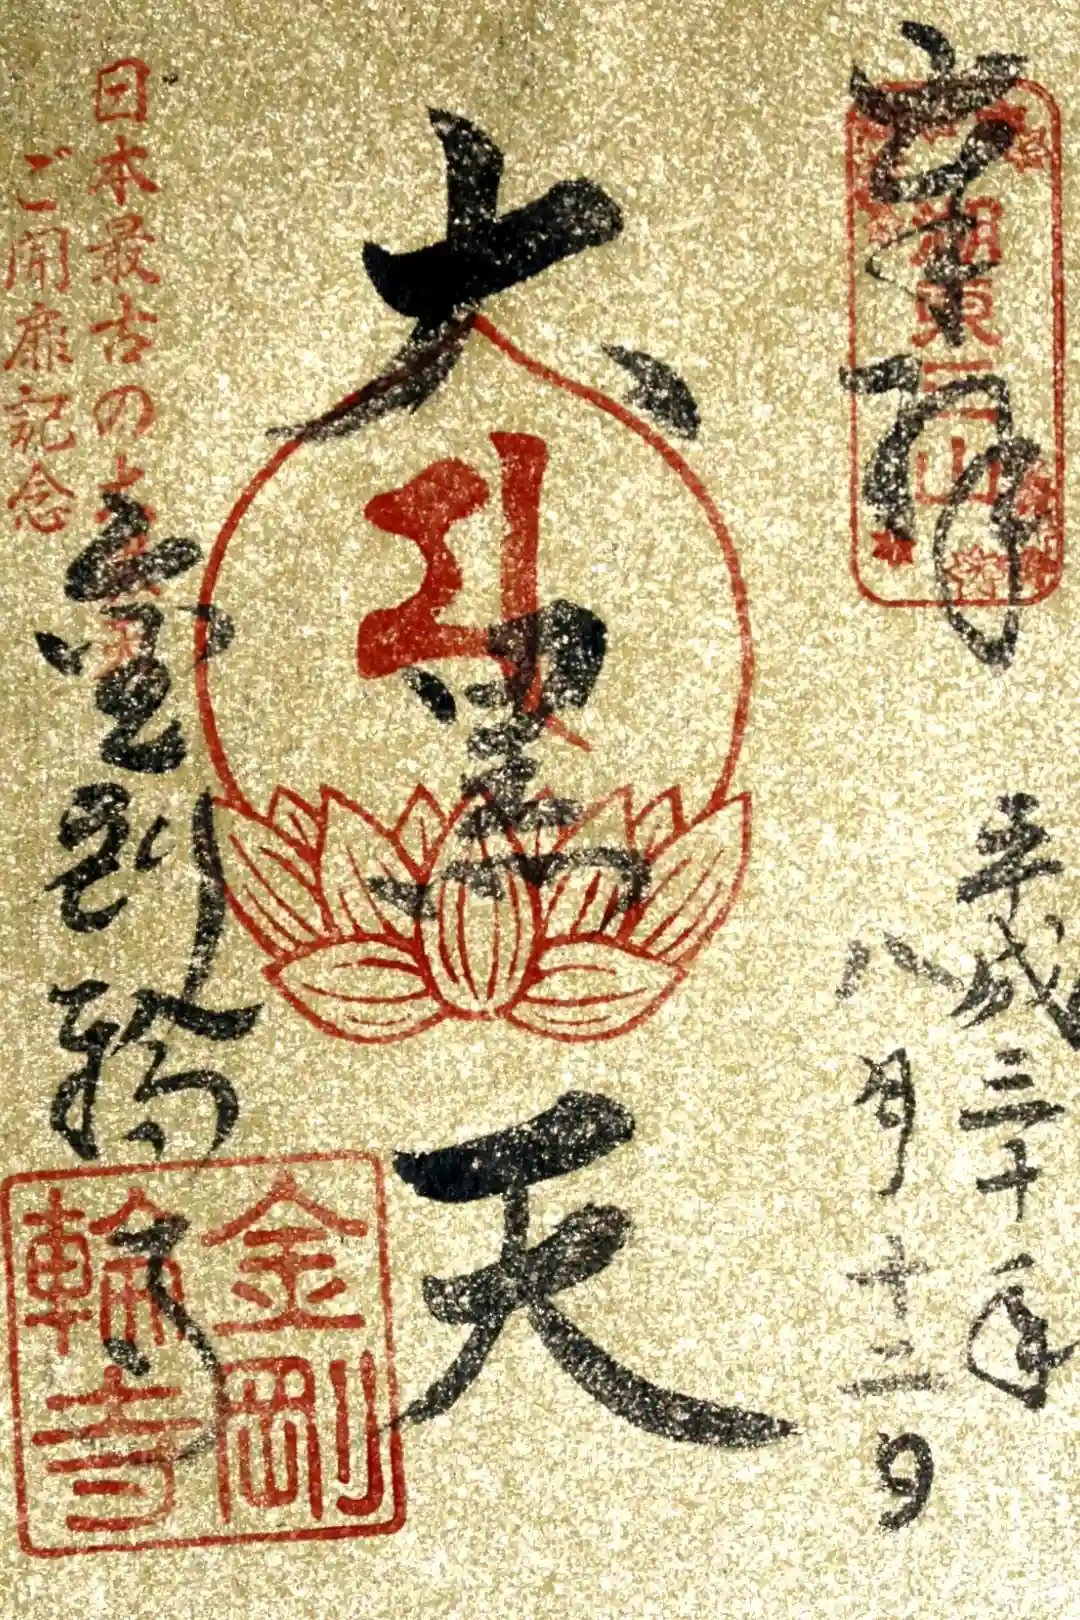 奉拝
湖東三山
平成三十年
八月十二日
大黒天
金剛輪寺
日本最古の大黒天
ご開扉記念
金剛輪寺